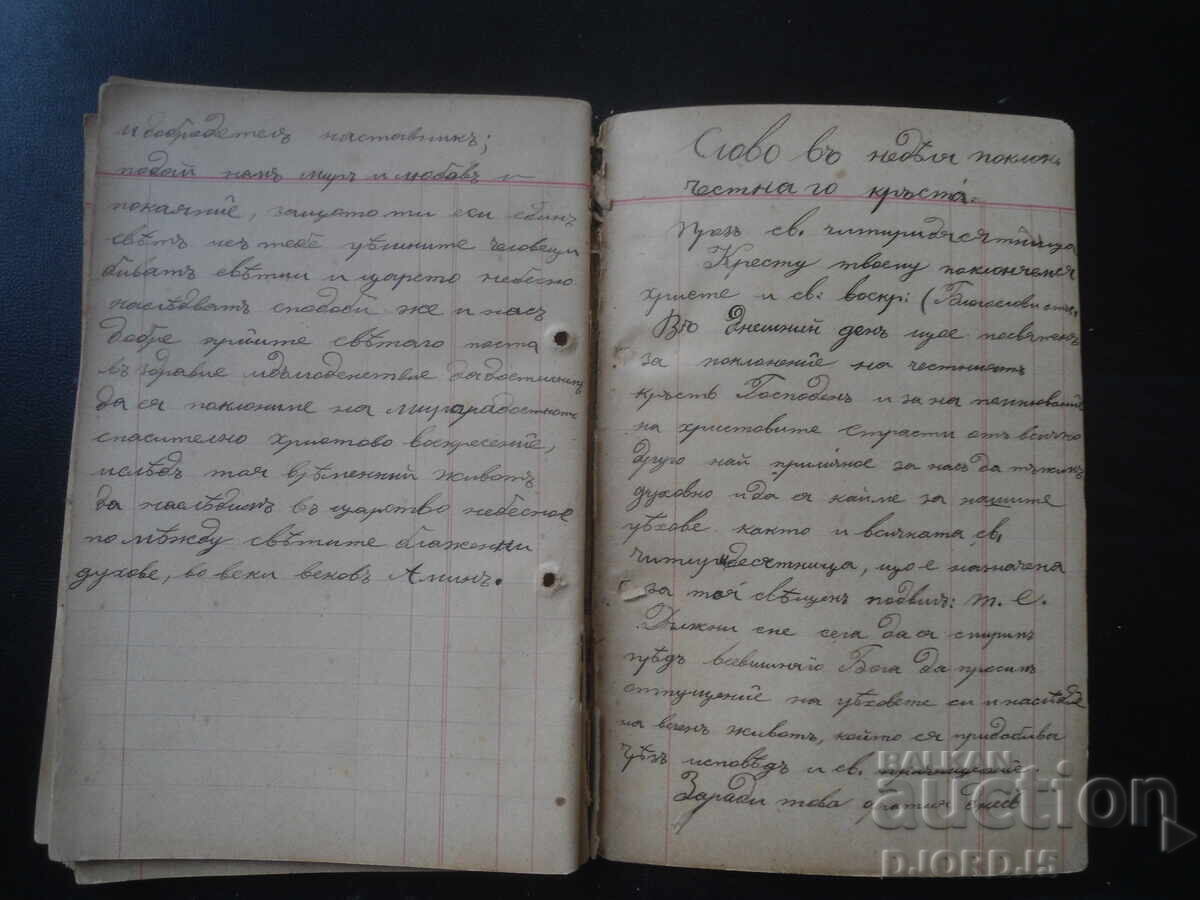 и добродетель наставникъ;
подай намъ миръ и любовь и
покаяние, защото ти еси единъ
светъ изъ тебе грѣшните человеци
биватъ свѣтии и царсто небесно
наслѣдватъ сподоби же и насъ
добре прийте свѣтаго поста
въ здравие
да ся поклониме на
спасително христово воскресение,
и слѣдъ тоя врѣменний животъ
да наслѣдимъ въ царство небесное
по мѣжду свѣтите блаженни
духове, во веки вековъ Аминъ.
Слово въ недѣля поклон.
честнаго кръста.
Презъ св. читиридясятница
Кресту твоему поклоняемся
христе и св: воскр: (Благослови
Въ днешний денъ що е посвятенъ
за поклонение на честниятъ
кръстъ Господенъ и за на
на христовите страсти отъ всичко
друго най прилично е за насъ да тъжимъ
духовно и да ся кайме за нашите
грѣхове както и всичката св.
читиридесятница, що е назначена
за тоя свѣщенъ подвигъ: т. е.
Длъжни сме сега да ся смиримъ
прѣдъ всевишняго Бога да просимъ
отпущение на грѣховете си и наслѣдие
на веченъ животъ, който ся придобива
чрѣзъ исповѣдъ и св. причищение.
Заради това братия
BALKAN
auction
DJORD_15